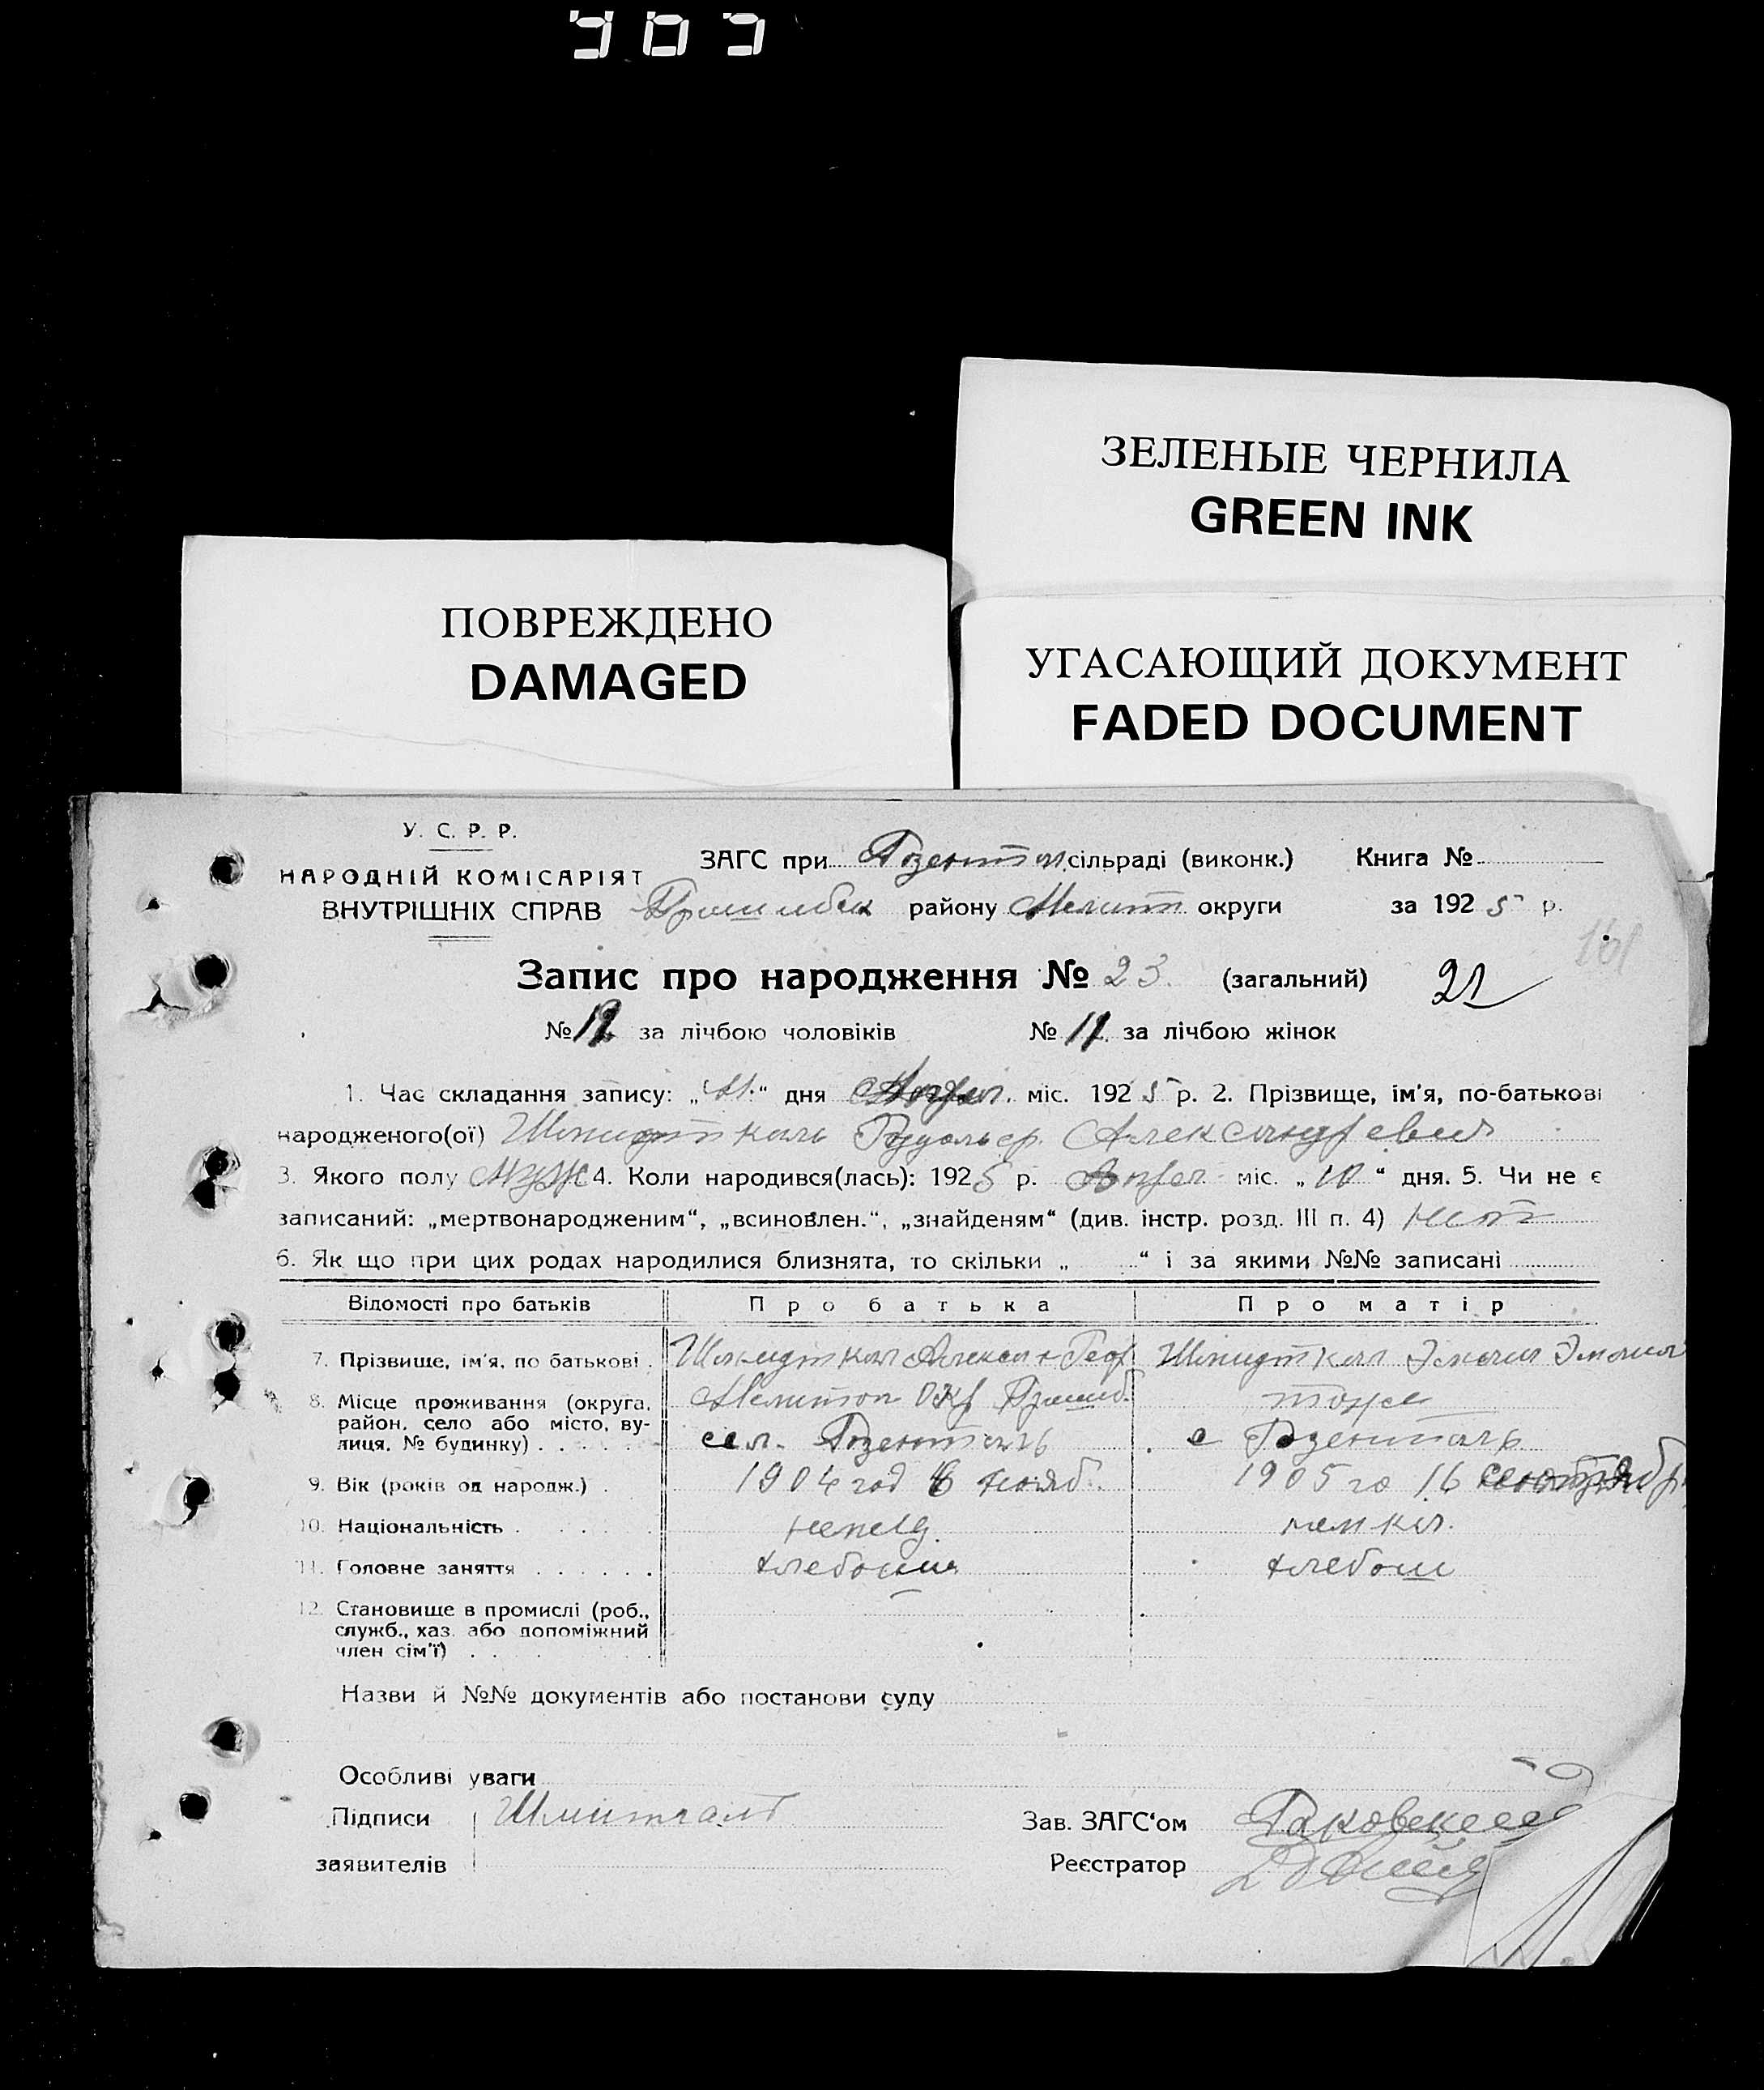 ЗЕЛЕНЫЕ ЧЕРНИЛА
GREEN INK
ПОВРЕЖДЕНО
DAMAGED
УГАСАЮЩИЙ ДОКУМЕНТ
FADED DOCUMENT
У. С. Р. Р.
НАРОДНІЙ КОМІСАРІЯТ
ВНУТРІШНІХ СПРАВ
ЗАГС при Розентал сільраді (виконк.) Книга №
району Мелит округи за 1925 р.
Запис про народження № 23 (загальний) 21
№ 12 за лічбою чоловіків № 11 за лічбою жінок
1. Час складання запису: „ “ дня Апрел. міс. 1925 р. 2. Прізвище, ім'я, по-батькові
народженого(ої) Рудольф Александрович
3. Якого полу Муж 4. Коли народився(лась): 1925 р. Апрел міс. „10“ дня. 5. Чи не є
записаний: „мертвонародженим“, „всиновлен.“, „знайденям“ (див. інстр. розд. III п. 4) нет
6. Як що при цих родах народилися близнята, то скільки „ “ і за якими №№ записані
Відомості про батьків Про батька Про матір
7. Прізвище, ім'я, по батькові
8. Місце проживання (округа, Мелитоп Окр Пришиб. тоже
район, село або місто, ву-
лиця, № будинку) сел. Розенталь с Розенталь
9. Вік (років од народж.) 1904 год 6 нояб. 1905 го 16 сентябр
10. Національність немец немка.
11. Головне заняття хлебопаш хлебопаш
12. Становище в промислі (роб.,
служб., хаз. або допоміжний
член сім'ї)
Назви й №№ документів або постанови суду
Особливі уваги
Підписи
заявителів
Зав. ЗАГС‘ом
Реєстратор